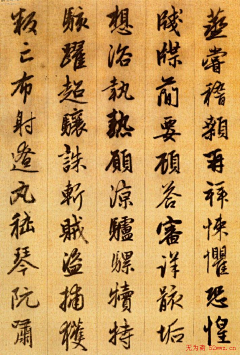 蒸嘗稽顙再拜悚懼恐惶
牋牒簡要顧答審詳骸垢
想浴執熱願涼驢騾犢特
駭躍超驤誅斬賊盜捕獲
叛亡布射遼丸嵇琴阮嘯